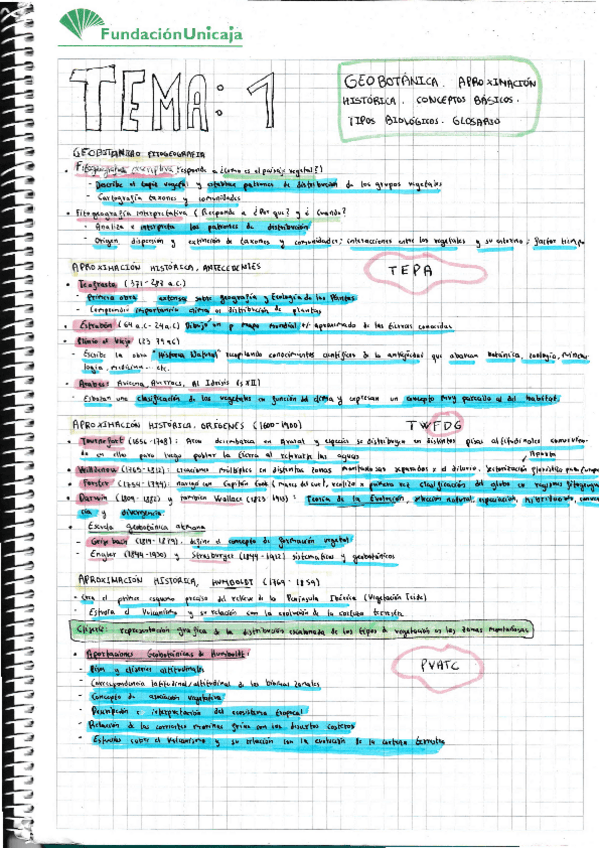 FundaciónUnicaja
TEMA: 1
GEOBOTÁNICA. APROXIMACIÓN
HISTÓRICA. CONCEPTOS BÁSICOS.
TIPOS BIOLÓGICOS. GLOSARIO
GEOBOTANICA O FITOGEOGRAFIA
• Fitogeografía descriptiva (responde a ¿como es el paisaje vegetal?)
- Describe el tapiz vegetal y establece patrones de distribución de los grupos vegetales
- Cartografía taxones y comunidades
• Fitogeografía interpretativa (Responde a ¿Por que? y ¿Cuando?
- Analiza e interpreta los patrones de distribución
- Origen, dispersión y extinción de taxones y comunidades; interacciones entre los vegetales y su entorno; factor tiempo
APROXIMACIÓN HISTÓRICA, ANTECEDENTES
TEPA
• Teofrasto (371-287 a.C.)
- Primera obra extensa sobre geografía y Ecología de las Plantas
- Comprender importancia clima en distribución de plantas
• Estrabón (64 a.C - 24 d.C) Dibujo un mapa mundial +/- aproximado de las tierras conocidas
• Plinio el Viejo (23-79 dC)
- Escribe la obra "Historia Natural" recopilando conocimientos científicos de la antigüedad que abarcan botánica, zoología, minera-
logía, medicina... etc.
• Arabes: Avicena, Averroes, Al Idrisis (s XII)
- Esbozan una clasificación de los vegetales en función del clima y expresan un concepto muy parecido al del habitat.
APROXIMACIÓN HISTÓRICA. ORÍGENES (1600-1900)
TWFDG
• Tournefort (1656-1708): Arca desembarca en Ararat y especies se distribuyen en distintos pisos altitudinales
en ello para luego poblar la tierra al retirarse las aguas
• Willdenow (1765-1812): creaciones múltiples en distintas zonas montañosas separadas x el diluvio.
• Forster (1754-1794): navegó con Capitán Cook (mares del sur), realizó x primera vez clasificación del globo en regiones
• Darwin (1809-1882) y tambien Wallace (1823-1913): Teoría de la Evolución, selección natural, especiación,
cia y divergencia.
• Escuela geobotánica alemana
- Grisebach (1814-1879). define el concepto de formación vegetal
- Engler (1844-1930) y Strasburger (1844-1912) sistematicos y geobotánicos
APROXIMACIÓN HISTÓRICA, HUMBOLDT (1769-1859)
• Crea el primer esquema preciso del relieve de la Península Ibérica (Vegetación Teide)
- Estudia el Vulcanismo y su relación con la evolución de la corteza terrestre
Cliserie: representación gráfica de la distribución escalonada de los tipos de vegetación en las zonas montañosas
• Aportaciones Geobotánicas de Humboldt:
PVATC
- Pisos y cliseries altitudinales
- Correspondencia latitudinal/altitudinal de los biomas zonales
- Concepto de asociación vegetativa
- Descripción e interpretación del ecosistema tropical
- Relación de las corrientes marinas frías con los desiertos costeros
- Estudios sobre el Vulcanismo y su relación con la evolución de la corteza terrestre